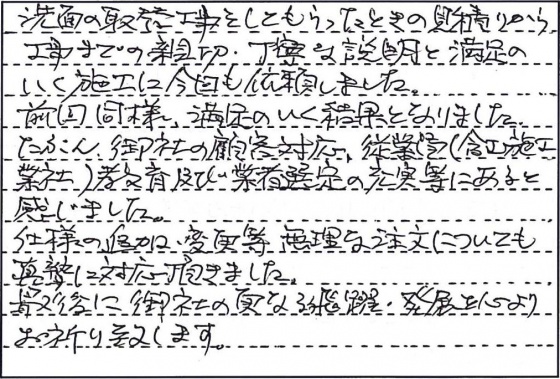 洗面の取替工事をしてもらったときの見積りから
工事までの親切・丁寧な説明と満足の
いく施工に今回も依頼しました。
前回同様、満足のいく結果となりました。
たぶん、御社の顧客対応、従業員(含む施工
業社)教育及び業者選定の充実等にあると
感じました。
仕様の追加・変更等無理な注文についても
真摯に対応頂きました。
最後に御社の更なる飛躍・発展を心より
お祈り致します。